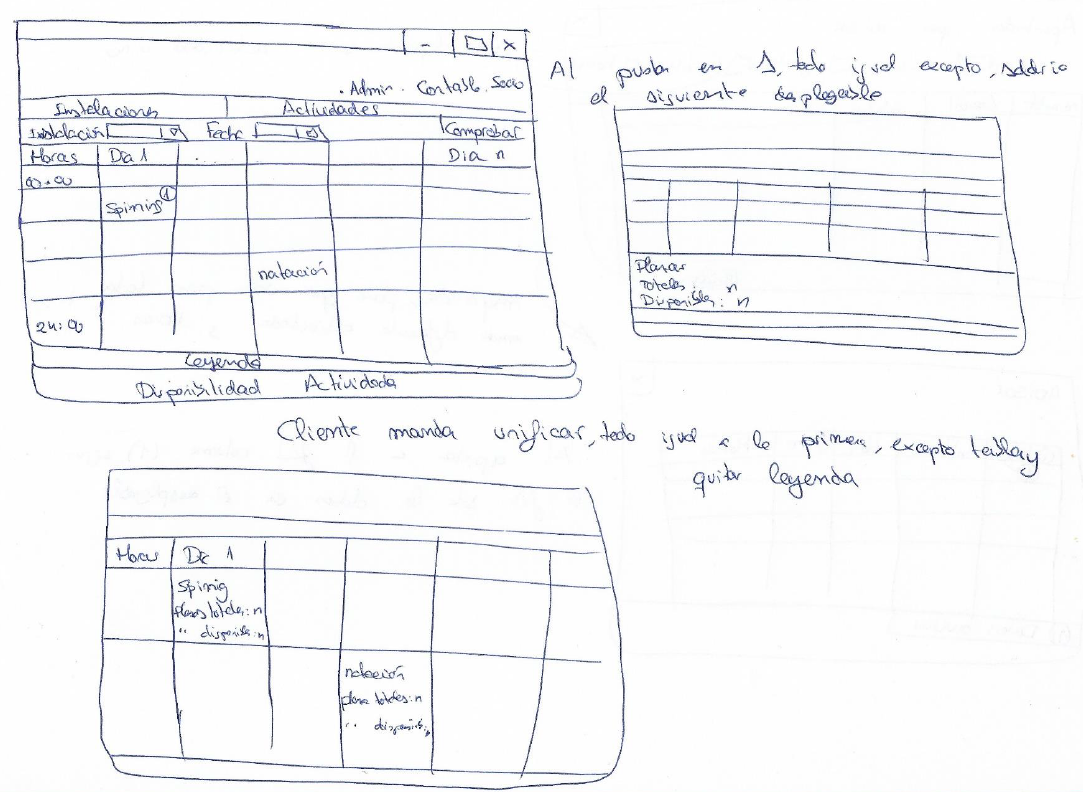 - □ x
. Admin. Contable, Socio
Instalaciones Actividades
Instalación Fecha Comprobar
Horas Día 1 . . . Dia n
00:00
Spining 1
natación
24:00
Leyenda
Disponibilidad Actividades
Al pulsar en 1, todo igual excepto,
el siguiente desplegable
Plazas
Totales: n
Disponibles: n
Cliente manda unificar, todo igual a la primera, excepto tabla y
quitar leyenda
Horas Día 1
Spinig
plazas totales: n
" disponibles: n
natación
plazas totales: n
" disponibles: